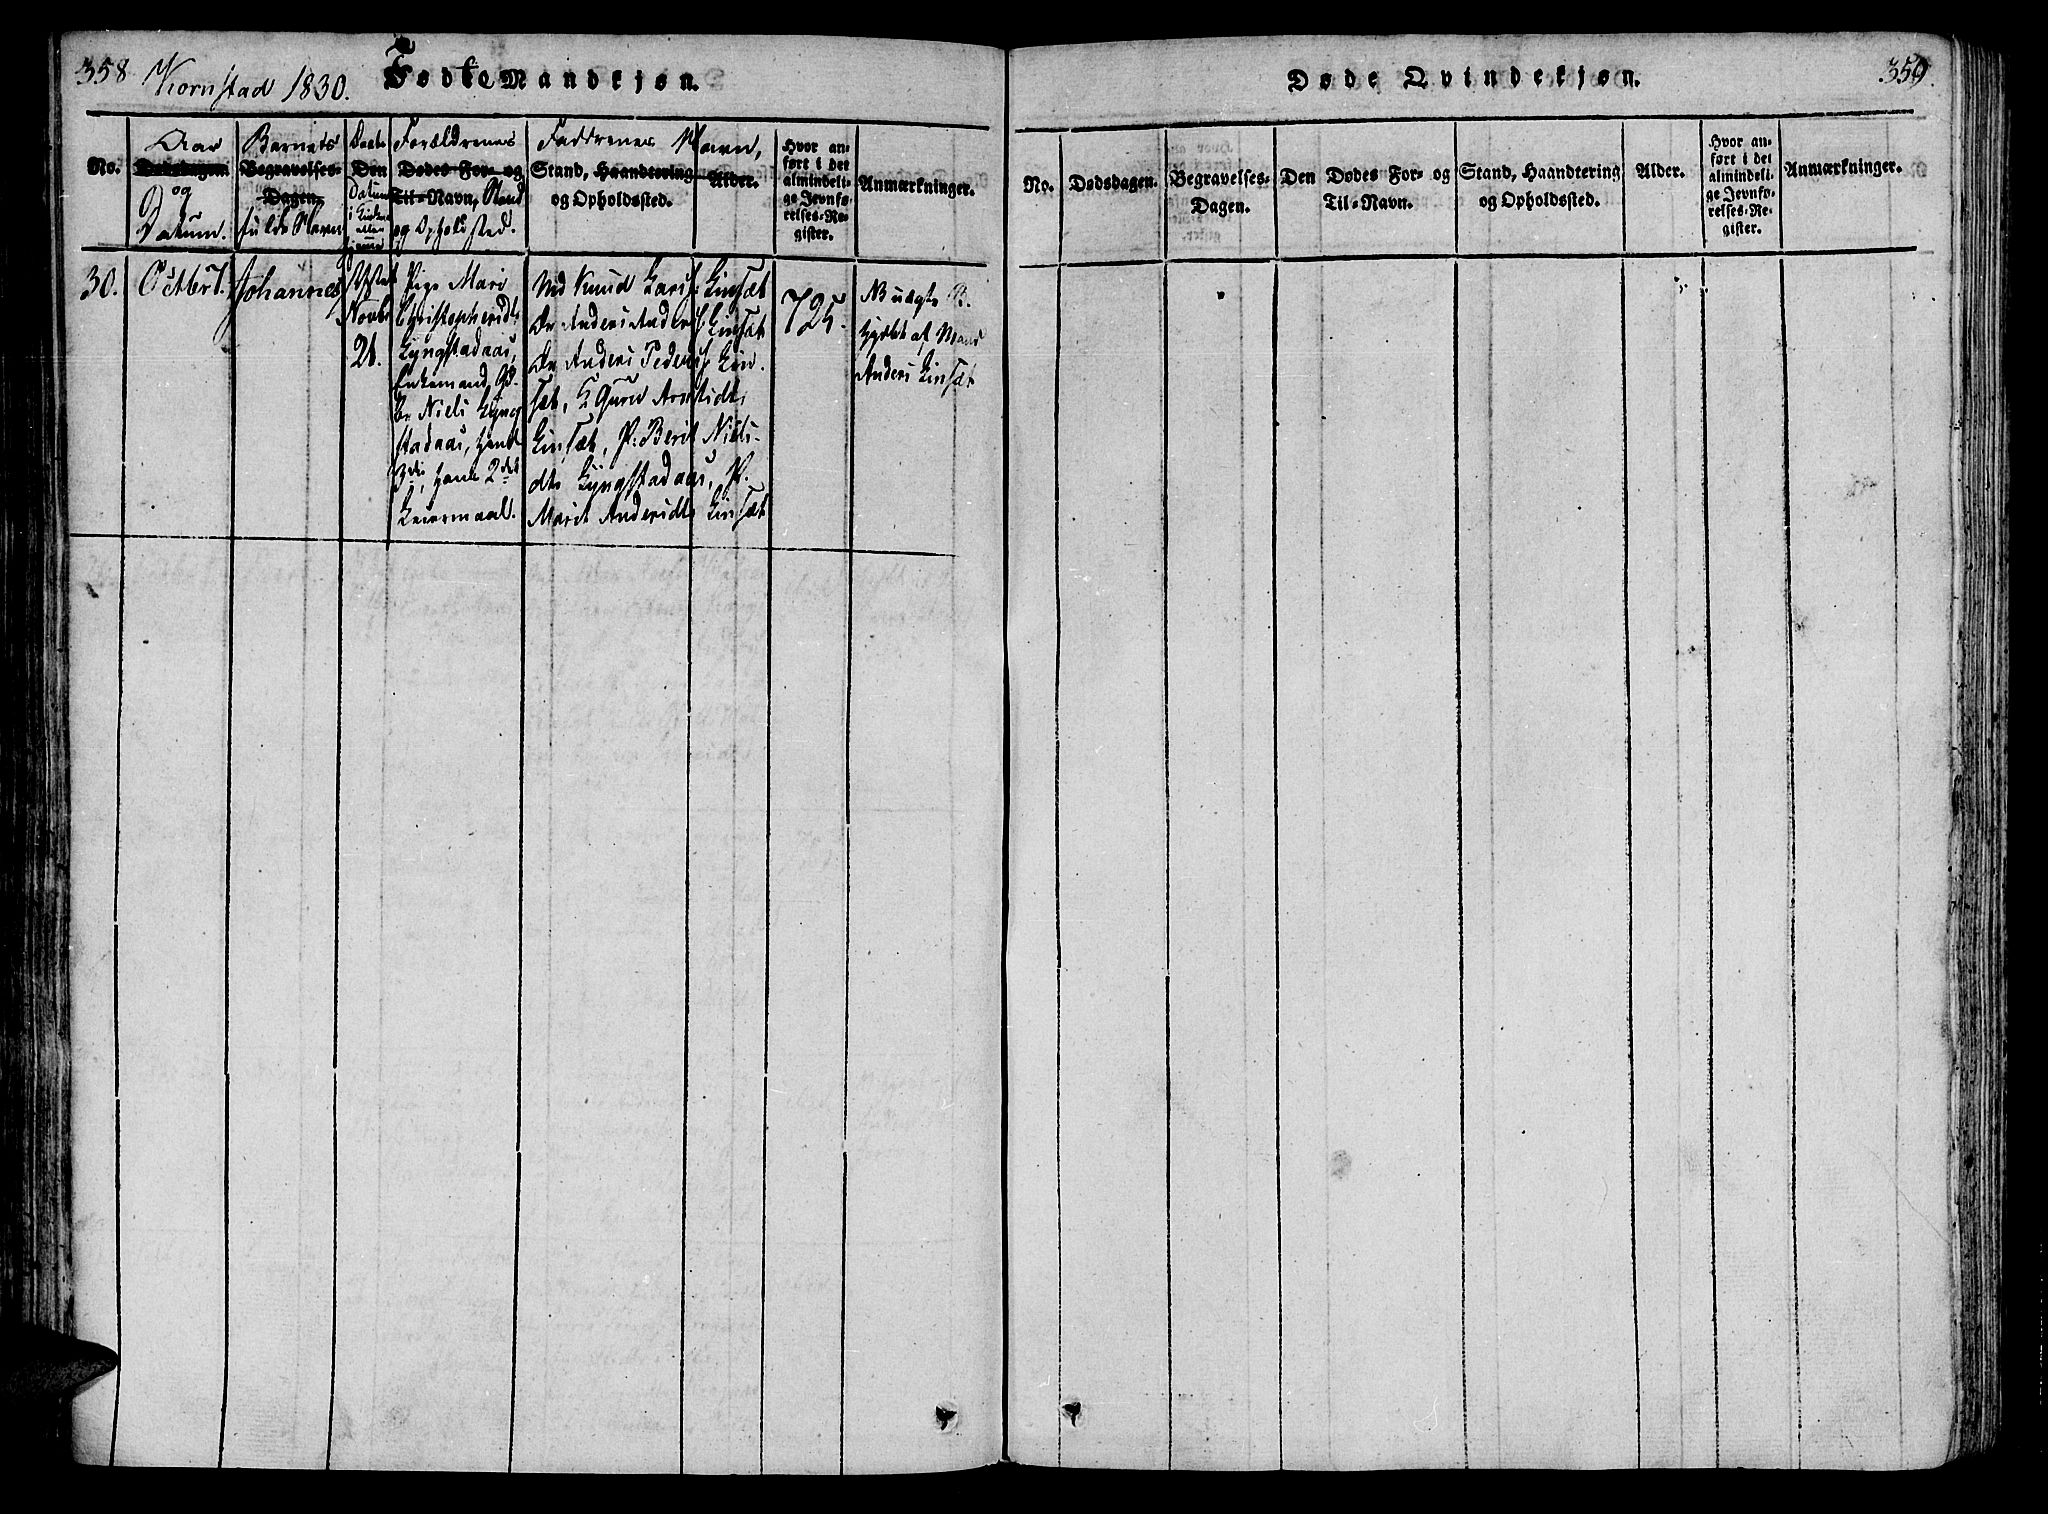 358 Kornstad 1830. Fødte Mandkjøn.
No.
Aar
Dødsdagen
og
Datum.
Barnets
Begravelses-
Dagen,
fulde Navn
Døbt
Den
Datum
i Kirken
eller
hjemme
Forældrenes
Dødes For- og
Til-Navn, Stand
og Opholdsted.
Faddrenes Navn,
Stand, Haandtering
og Opholdssted.
Alder.
Hvor an-
ført i det
almindeli-
ge Jevnfø-
relses-Re-
gister.
Anmærkninger.
30.
Octbr 7.
Johannes
Novbr
21.
Pige Mari
Christophersdtr
Lyngstadaas,
Enkemand, Gd
Br Niels Lyng
stadaas, hend
3die, hans 2det
Leiermaal.
Md Knud Lars: Linsæt
Dr Anders Anders: Linsæt
Dr Anders Peders: Lin-
sæt, K Guru Arntdtr
Linsæt, P. Berit Niels-
dtr Lyngstadaas, P.
Marit Andersdtr Linsæt
725.
N B uægte B.
hjøbt af Mand
Anders Linsæt
Døde Qvindekjøn.
359.
No.
Dødsdagen.
Begravelses-
Dagen.
Den Dødes For- og
Til-Navn.
Stand, Haandtering
og Opholdssted.
Alder.
Hvor an-
ført i det
almindeli-
ge Jevnfø-
relses-Re-
gister.
Anmærkninger.